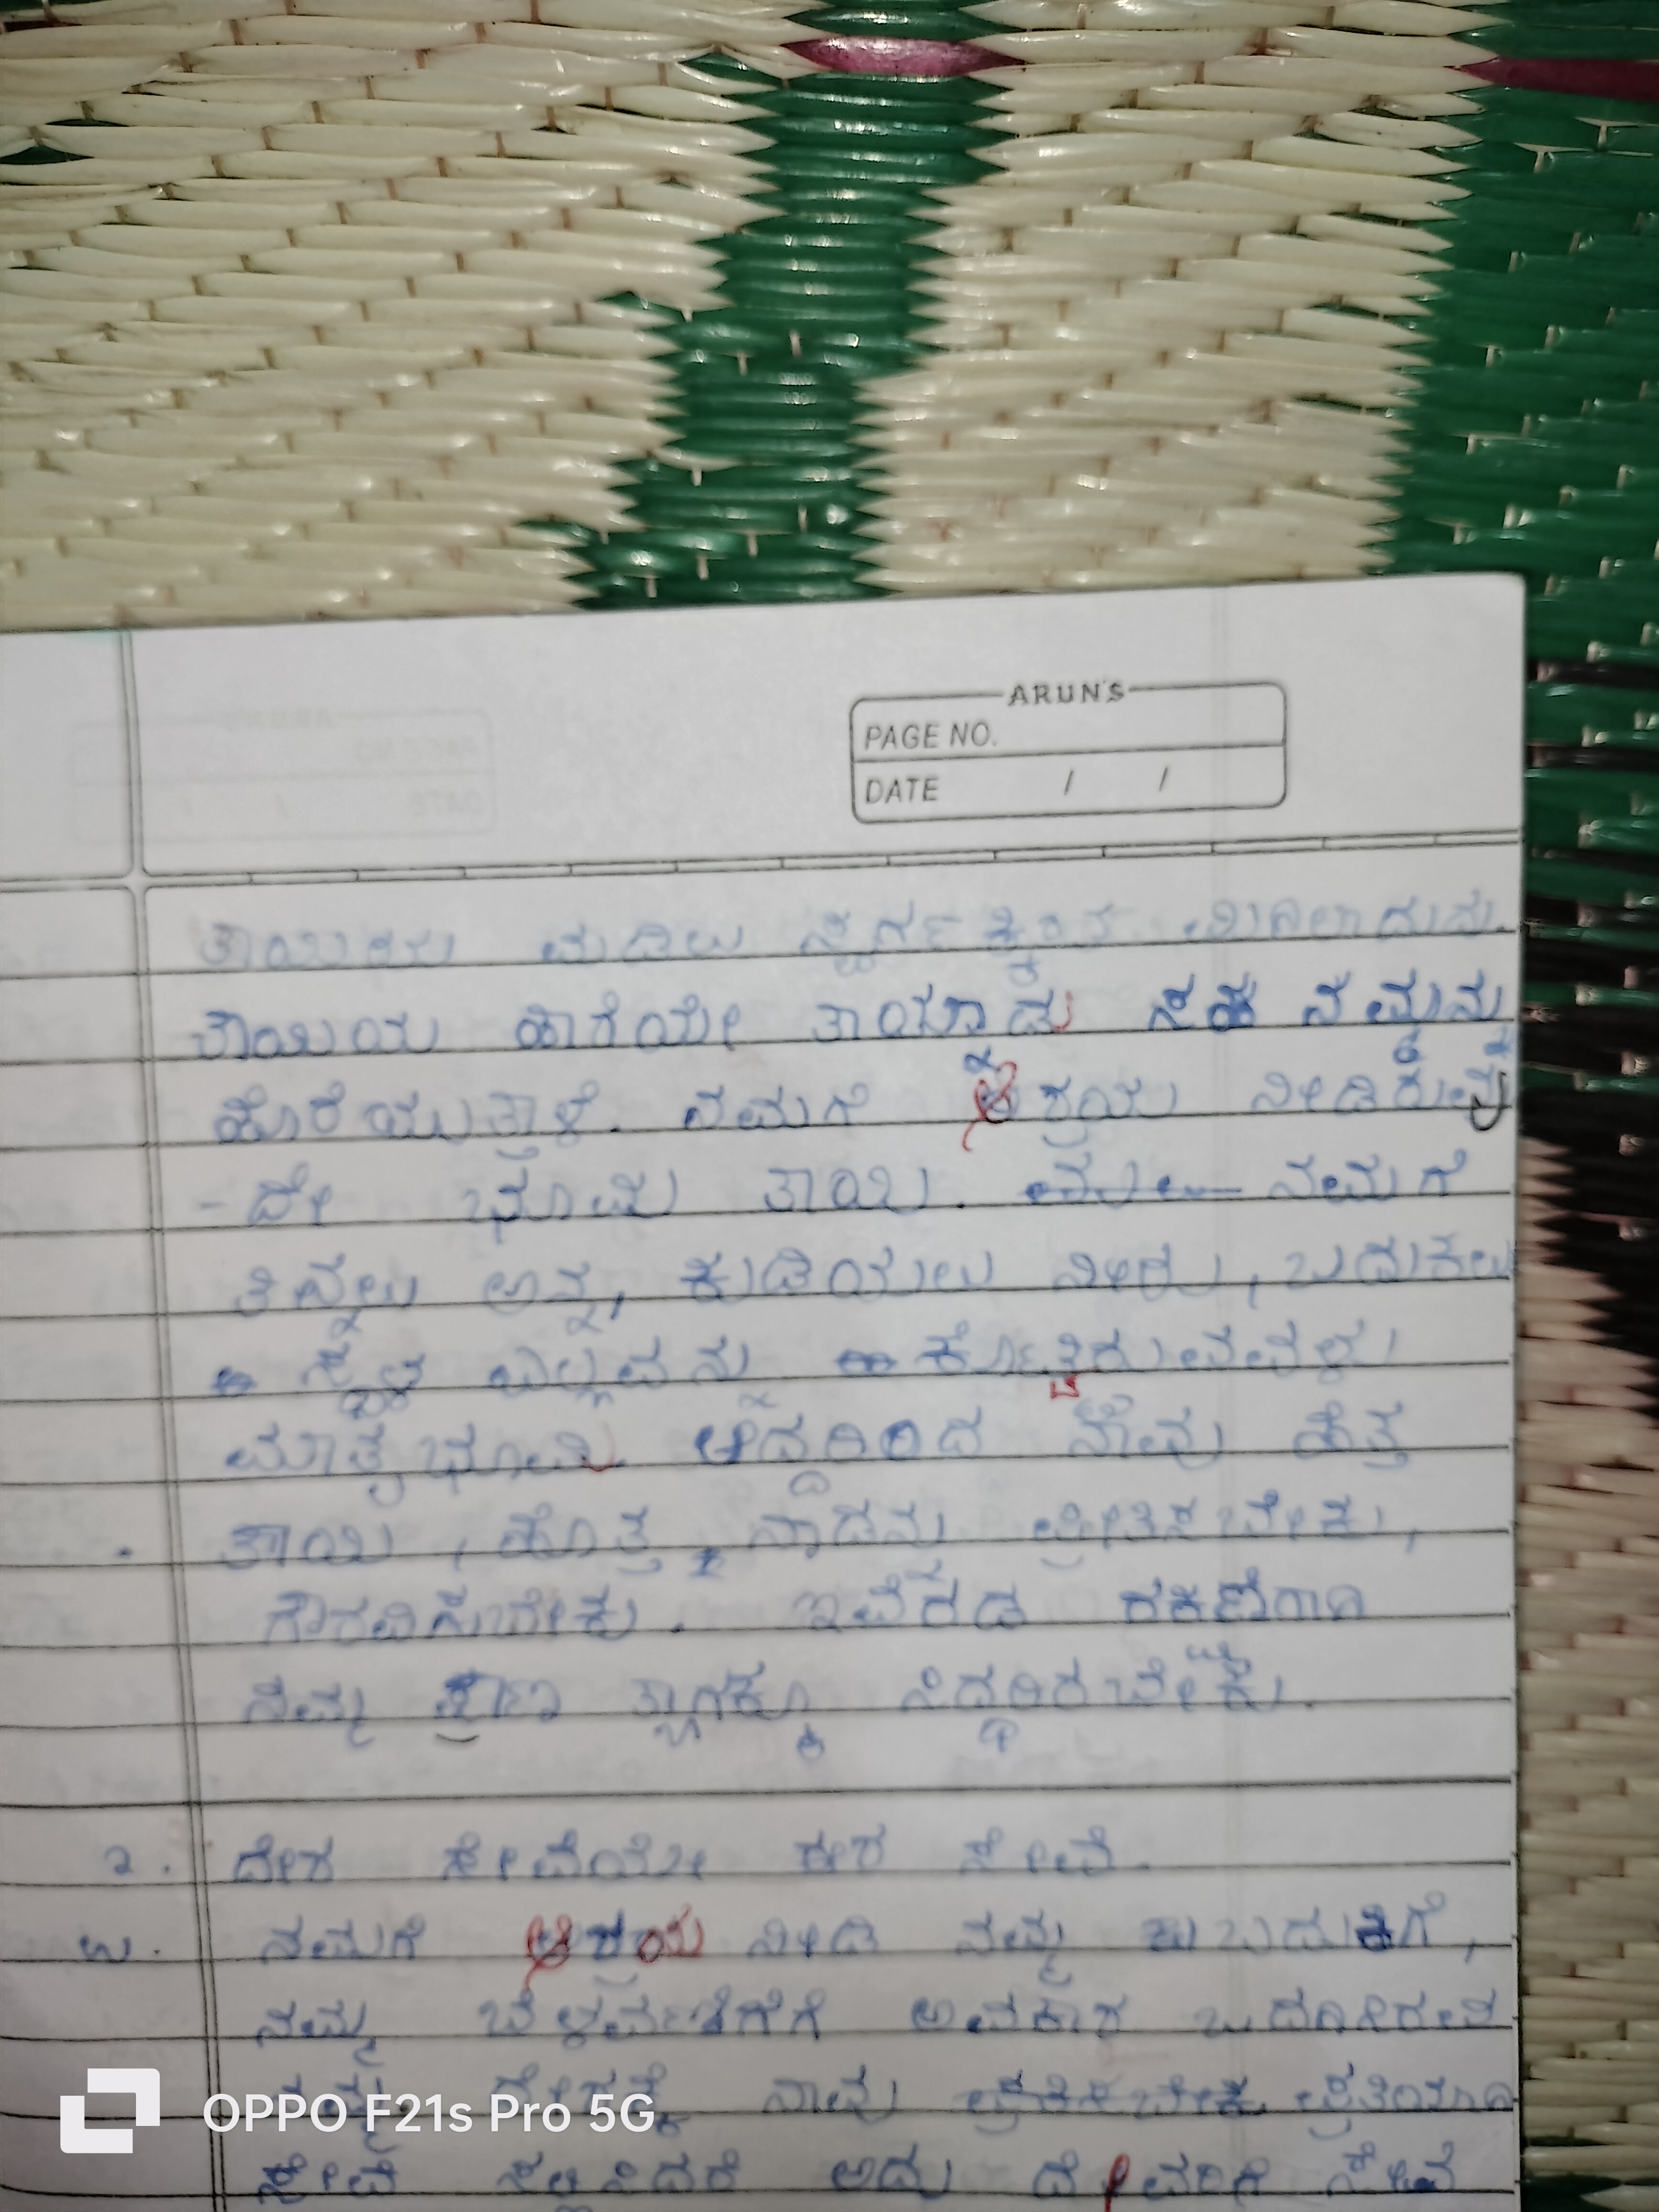 ARUN'S
PAGE NO.
DATE / /
ತಾಯಿಯ ಮಡಿಲು ಸ್ವರ್ಗಕ್ಕಿಂತ ಮಿಗಿಲಾದುದು.
ತಾಯಿಯ ಹಾಗೆಯೇ ತಾಯ್ನಾಡು ಸಹ ನಮ್ಮನ್ನು
ಹೊರೆಯುತ್ತಾಳೆ. ನಮಗೆ ಆಶ್ರಯ ನೀಡಿರುವು
-ದೇ ಭೂಮಿ ತಾಯಿ. ನಮಗೆ
ತಿನ್ನಲು ಅನ್ನ, ಕುಡಿಯಲು ನೀರು, ಬದುಕಲು
ಸ್ಥಳ ಎಲ್ಲವನ್ನು ಕೊಟ್ಟಿರುವವಳು
ಮಾತೃಭೂಮಿ ಆದ್ದರಿಂದ ನಾವು ಹೆತ್ತ
ತಾಯಿ, ಹೊತ್ತ ನಾಡನು ಪ್ರೀತಿಸಬೇಕು,
ಗೌರವಿಸಬೇಕು. ಇವೆರಡ ರಕ್ಷಣೆಗಾಗಿ
ನಮ್ಮ ಪ್ರಾಣ ತ್ಯಾಗಕ್ಕೂ ಸಿದ್ಧರಿರಬೇಕು.
೨. ದೇಶ ಸೇವೆಯೇ ಈಶ ಸೇವೆ.
ಉ. ನಮಗೆ ಆಶ್ರಯ ನೀಡಿ ನಮ್ಮ ಬದುಕಿಗೆ,
ನಮ್ಮ ಬೆಳವಣಿಗೆಗೆ ಅವಕಾಶ ಒದಗಿಸಿರುವ
ನಮ್ಮ ದೇಶಕ್ಕೆ ನಾವು ಪ್ರೀತಿಯಿಂದ
ಸೇವೆ ಸಲ್ಲಿಸಿದರೆ ಅದು ದೇವರಿಗೆ ಸೇವೆ
OPPO F21s Pro 5G